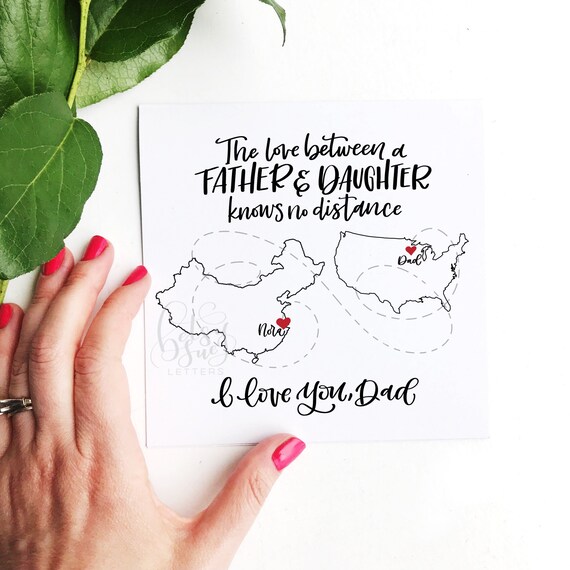 The love between a
FATHER & DAUGHTER
knows no distance
Dad
Nora
Betsy Sue
LETTERS
I love you, Dad